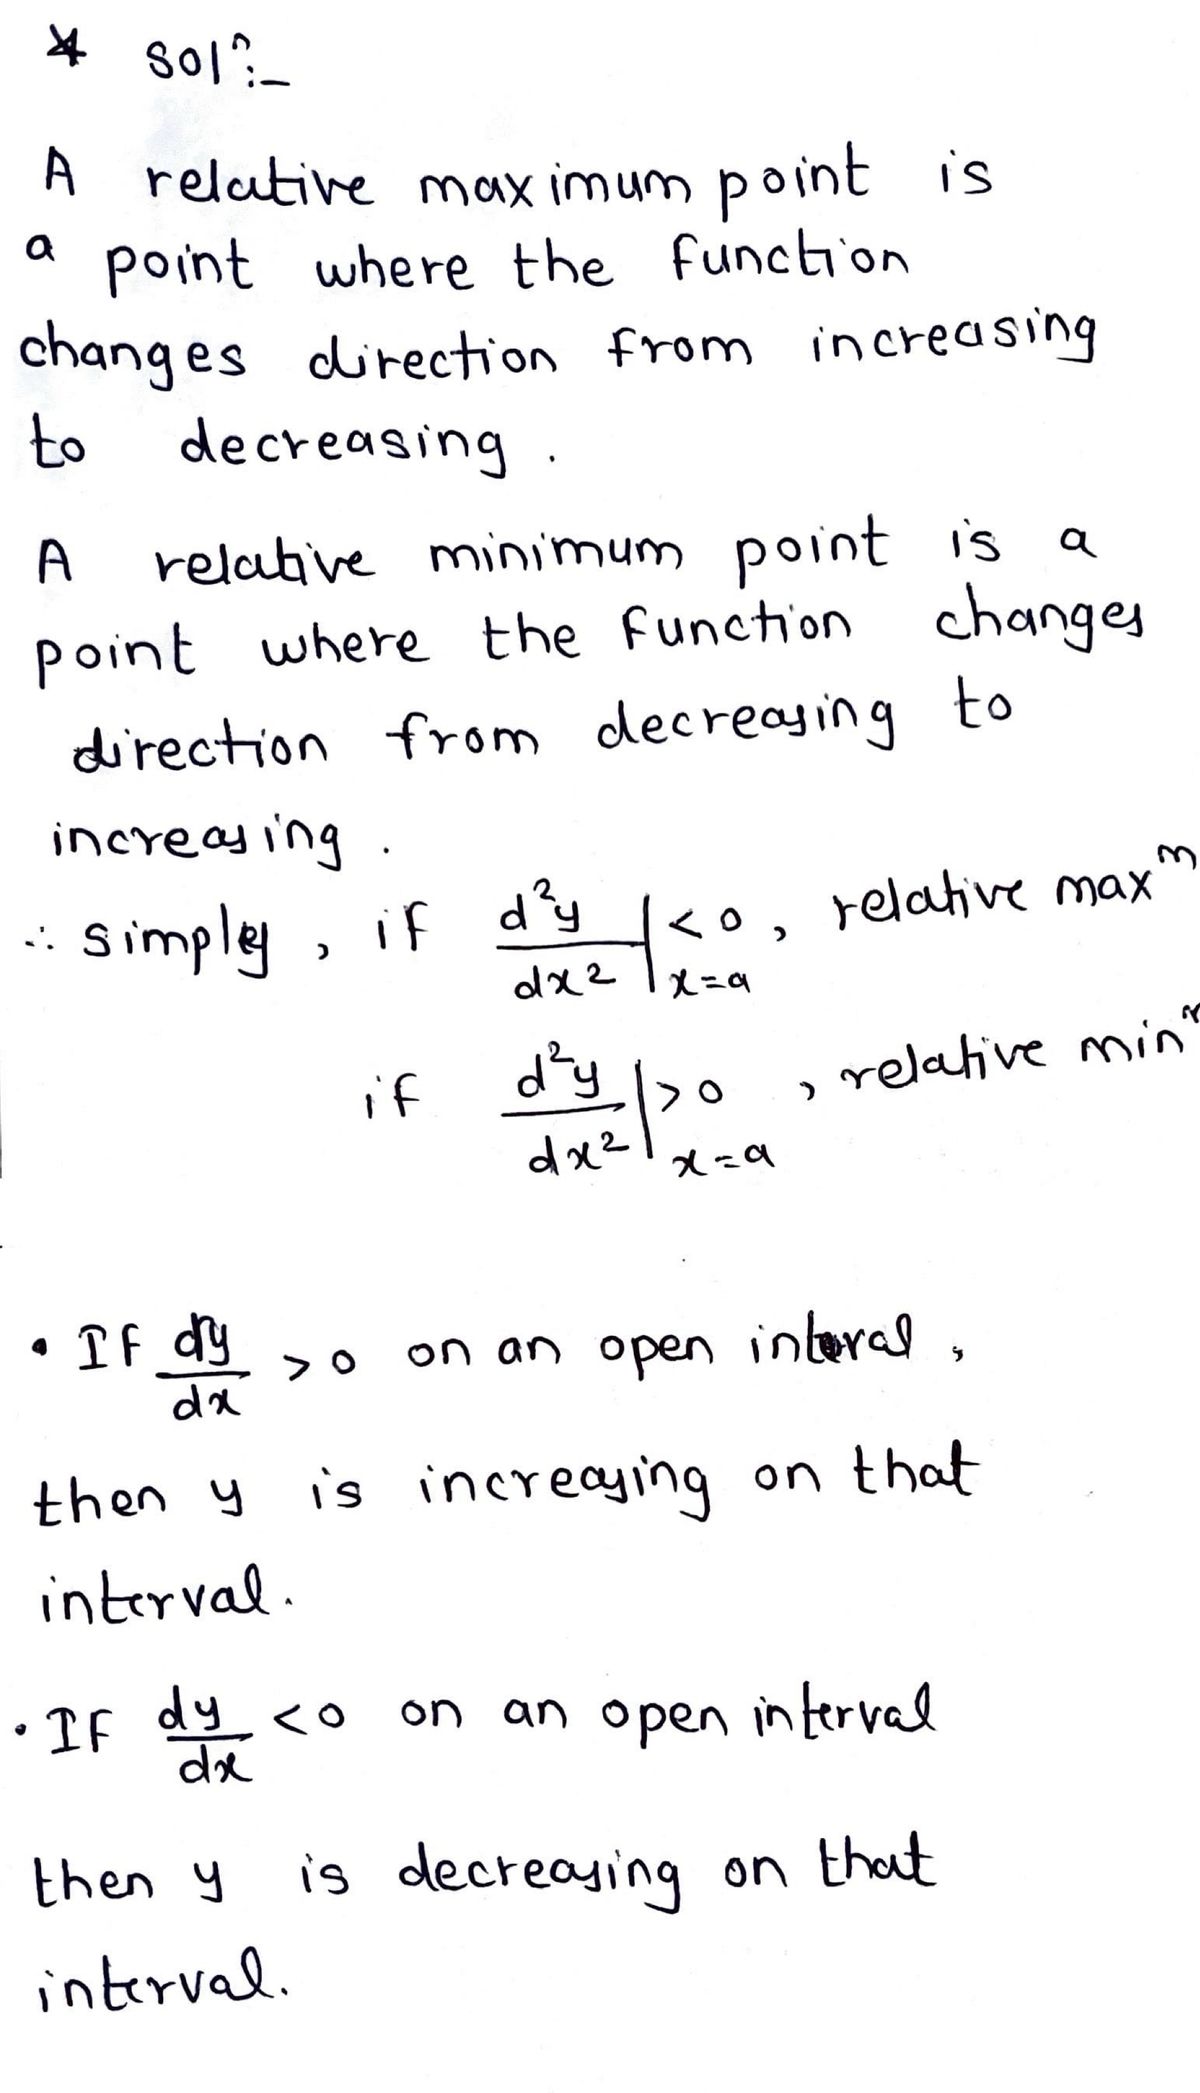 * Solⁿ:-
A relative maximum point is
a point where the function
changes direction from increasing
to decreasing.
A relative minimum point is a
point where the function changes
direction from decreasing to
increasing.
∴ simply, if d²y/dx² |x=a <0, relative maxᵐ
if d²y/dx² |x=a >0, relative minᵐ
• If dy/dx >0 on an open interal,
then y is increasing on that
interval.
• If dy/dx <0 on an open interval
then y is decreasing on that
interval.